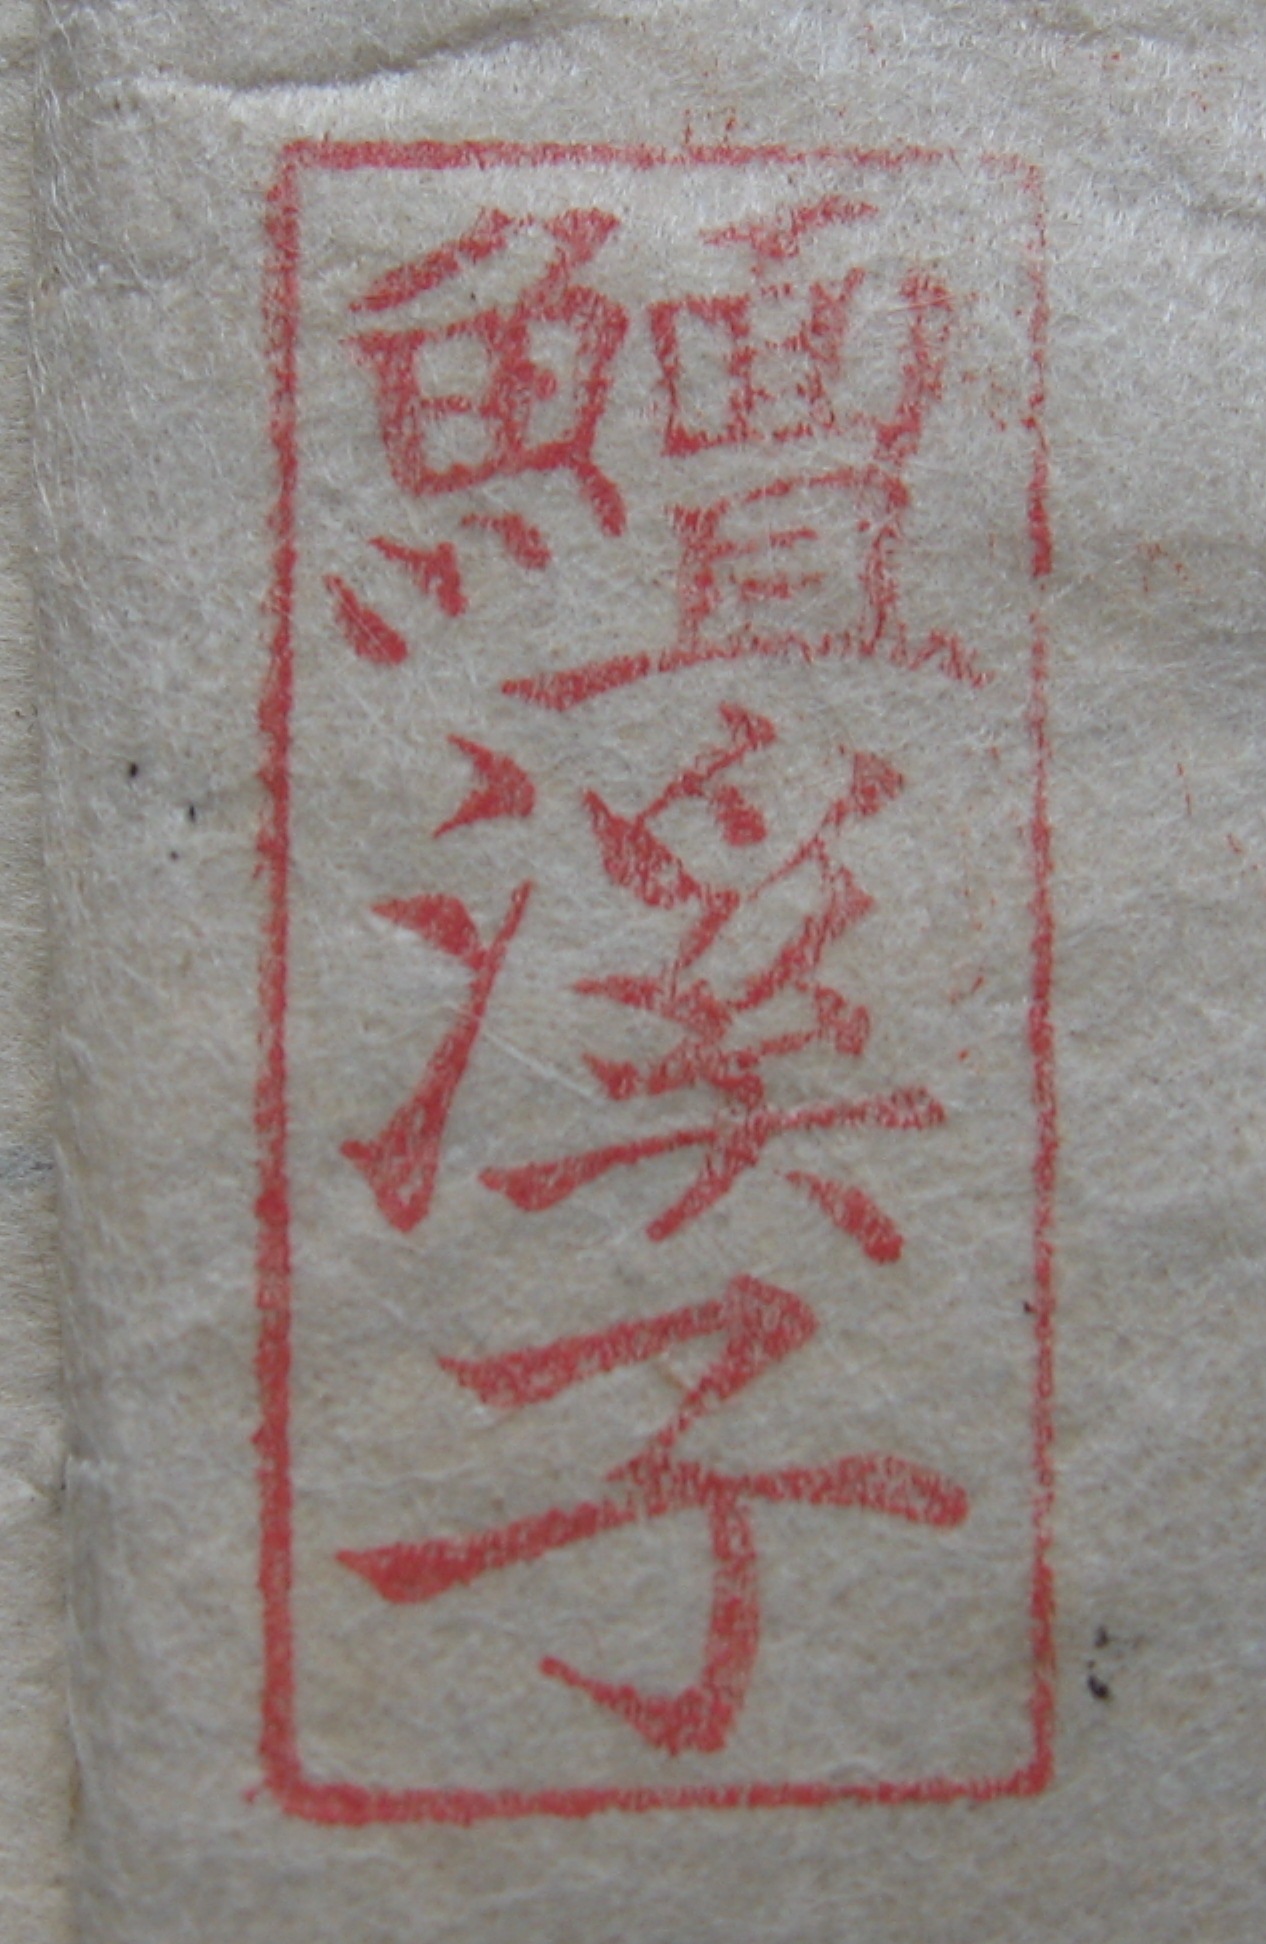 鱣溪子